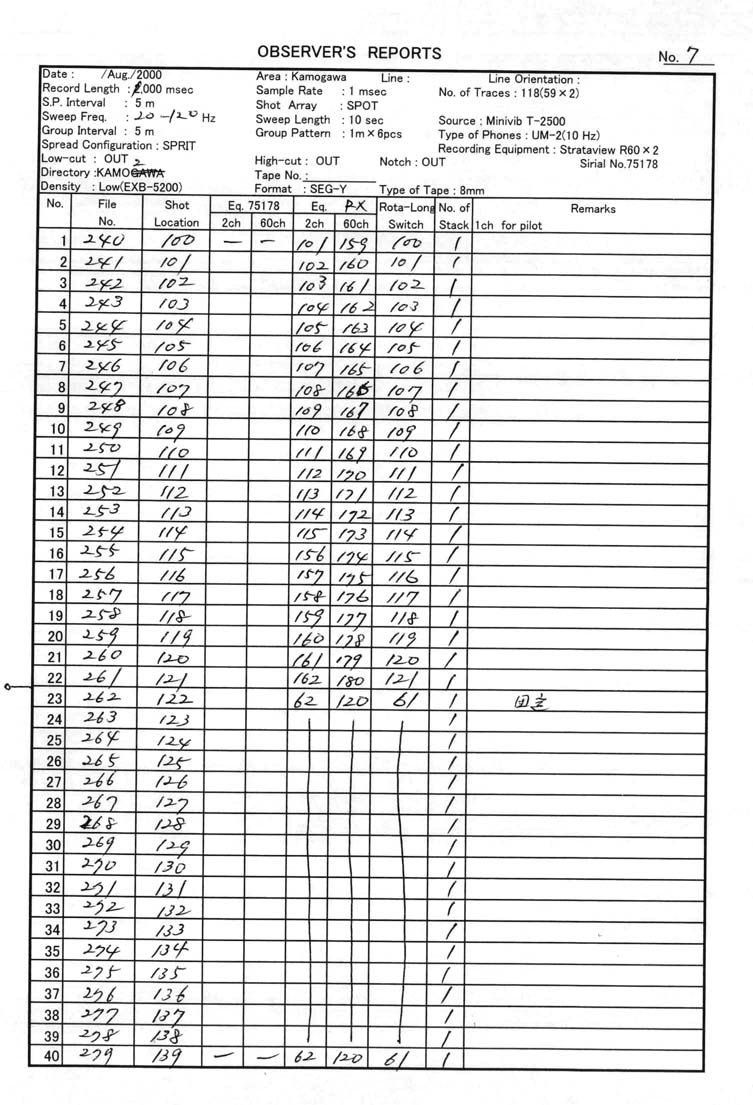 OBSERVER'S REPORTS
No. 7
Date : /Aug./2000 Area : Kamogawa Line : Line Orientation :
Record Length : 2,000 msec Sample Rate : 1 msec No. of Traces : 118(59×2)
S.P. Interval : 5 m Shot Array : SPOT
Sweep Freq. : 20-120 Hz Sweep Length : 10 sec Source : Minivib T-2500
Group Interval : 5 m Group Pattern : 1m×6pcs Type of Phones : UM-2(10 Hz)
Spread Configuration : SPRIT Recording Equipment : Strataview R60×2
Low-cut : OUT High-cut : OUT Notch : OUT Sirial No.75178
Directory :KAMO2 Tape No.:
Density : Low(EXB-5200) Format : SEG-Y Type of Tape : 8mm
No. File Shot Eq. 75178 Eq. RX Rota-Long No. of Remarks
No. Location 2ch 60ch 2ch 60ch Switch Stack 1ch for pilot
1 240 100 — — 101 159 100 1
2 241 101 102 160 101 1
3 242 102 103 161 102 1
4 243 103 104 162 103 1
5 244 104 105 163 104 1
6 245 105 106 164 105 1
7 246 106 107 165 106 1
8 247 107 108 166 107 1
9 248 108 109 167 108 1
10 249 109 110 168 109 1
11 250 110 111 169 110 1
12 251 111 112 170 111 1
13 252 112 113 171 112 1
14 253 113 114 172 113 1
15 254 114 115 173 114 1
16 255 115 156 174 115 1
17 256 116 157 175 116 1
18 257 117 158 176 117 1
19 258 118 159 177 118 1
20 259 119 160 178 119 1
21 260 120 161 179 120 1
22 261 121 162 180 121 1
23 262 122 62 120 61 1 固定
24 263 123 1
25 264 124 1
26 265 125 1
27 266 126 1
28 267 127 1
29 268 128 1
30 269 129 1
31 270 130 1
32 271 131 1
33 272 132 1
34 273 133 1
35 274 134 1
36 275 135 1
37 276 136 1
38 277 137 1
39 278 138 1
40 279 139 — — 62 120 61 1